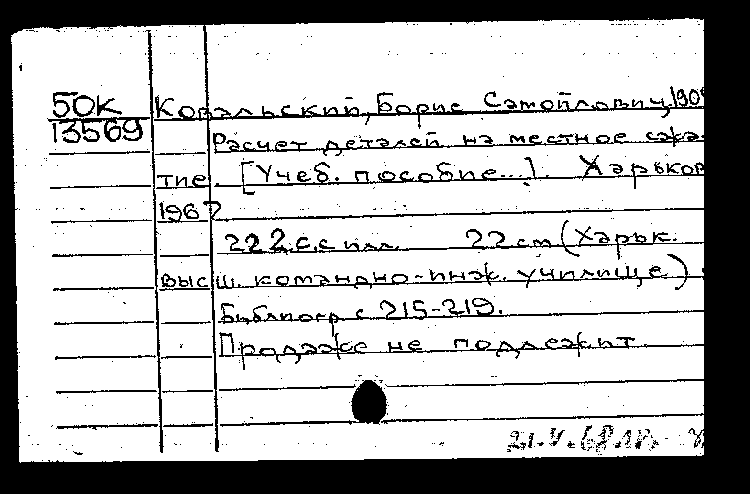 50К Ковальский, Борис Самойлович, 190
13569 Расчет деталей на местное сжа-
тие. [Учеб. пособие...]. Харьков
1967
222 с. с илл. 22 см (Харьк.
высш. командно-инж. училище)
Библиогр с 215-219.
Продаже не подлежит
21.V.68